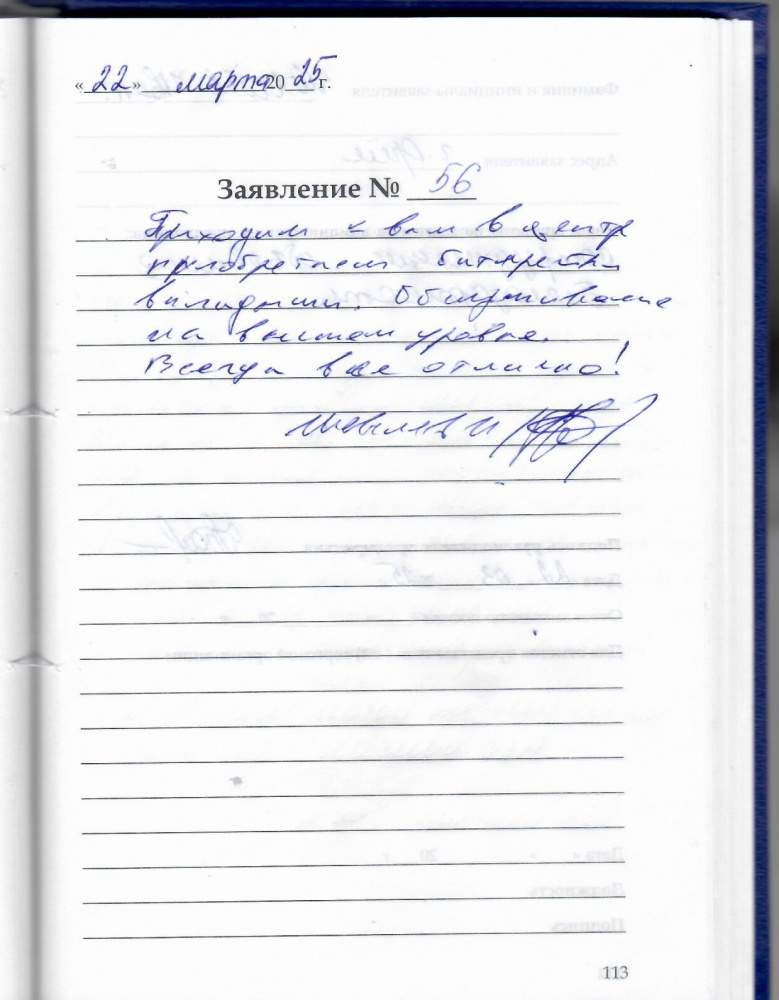 «22» марта 2025 г.
Заявление № 56
Приходим к вам в центр
приобретаем батарейки
вкладыши. Обслуживание
на высшем уровне.
Всегда все отлично!
113